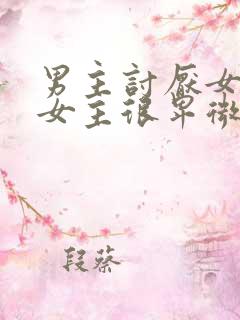 男主討厭女
女主很卑微
段蔡